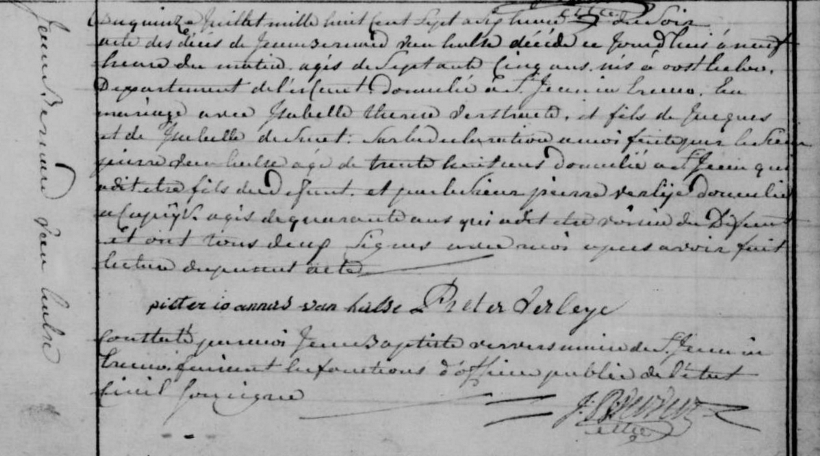 Jean Bernard Van hulse
Du quinze Juillet mille huit Cent Sept a Six heure du Soir
acte des décés de Jean Bernard Van hulse décédé ce Jourdhuis á neuf
heure du matin, agés de Septante Cinq ans, nés á oost
Departement de l'escaut Domicilié a St. Jean in Eremo. En
mariage avec Isabelle therese verstraete, et fils de Jacques
et de Isabelle de Smet: Sur la declaration a moi faite par le Sieur
pierre Van hulse agé de trente huit ans Domicilié a St. Jean qui
adit etre fils du Defunt. et par le Sieur pierre verlije Domicilié
a Capryk. agés de quarante ans qui adit etre voisin du Defunt
et ont tous deux Signés avec moi apres avoir fait
lecture du present acte
pieter ioannes van hulse Pieter Verleye
Constaté par moi Jean Baptiste maire de St. Jean in
Eremo, faisant les fonctions d'officier public de l'état
Civil Soussigné